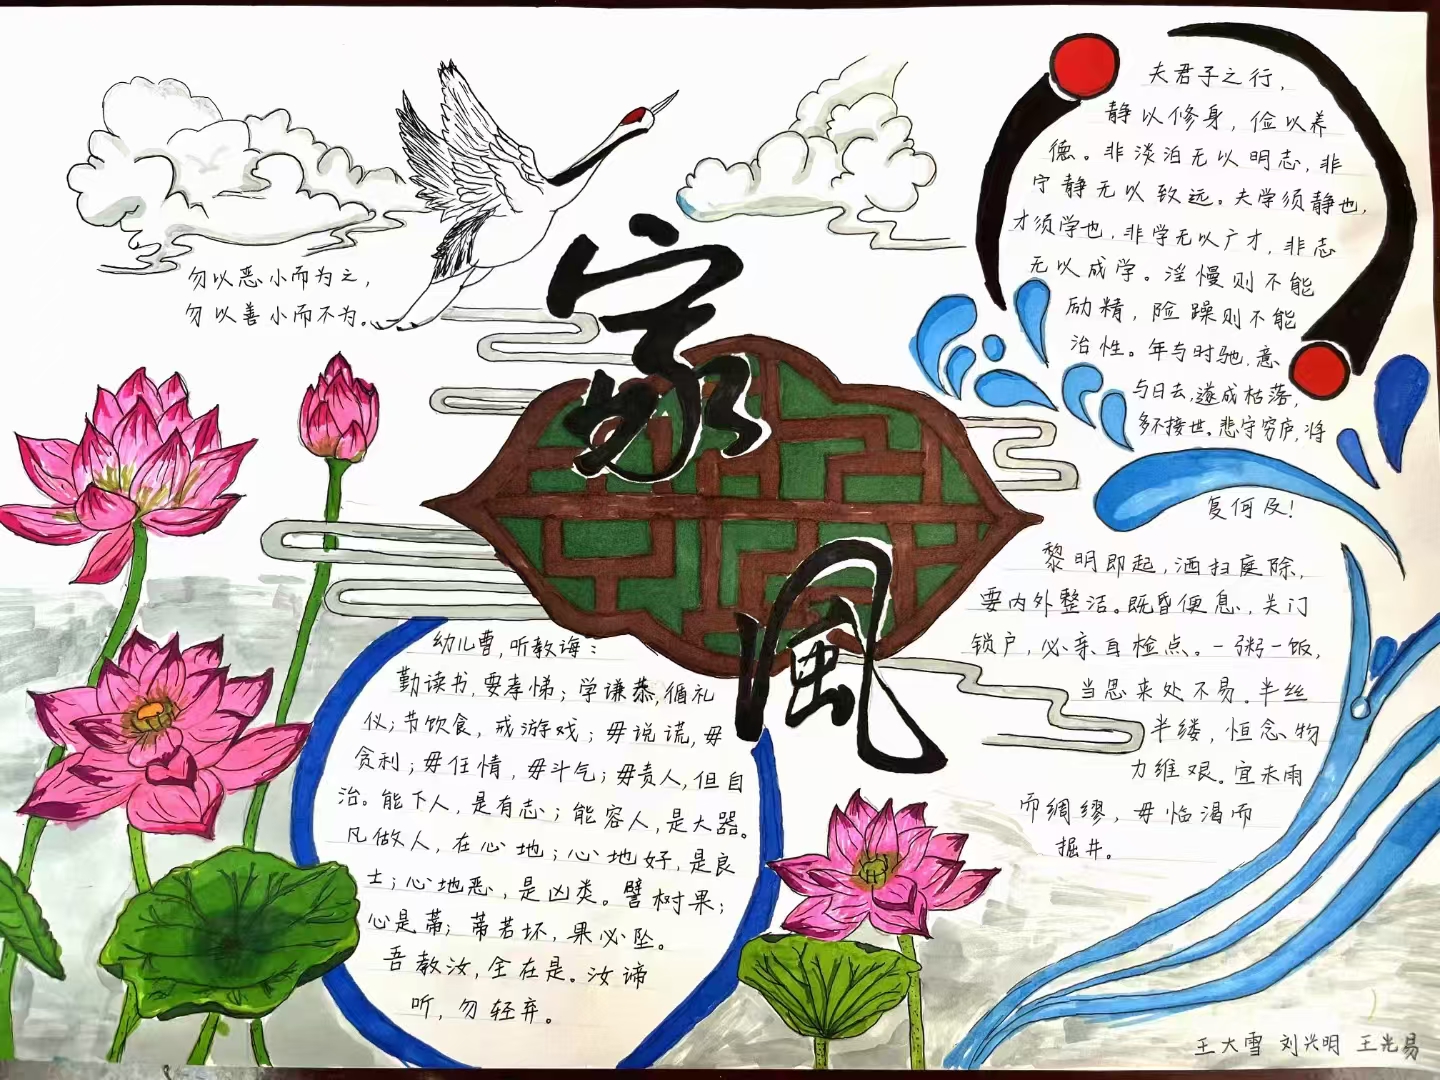 勿以恶小而为之，
勿以善小而不为。
家
風
夫君子之行，
静以修身，俭以养
德。非淡泊无以明志，非
宁静无以致远。夫学须静也，
才须学也，非学无以广才，非志
无以成学。淫慢则不能
励精，险躁则不能
治性。年与时驰，意
与日去，遂成枯落，
多不接世、悲守穷庐，将
复何及！
黎明即起，洒扫庭除，
要内外整洁。既昏便息，关门
锁户，必亲自检点。一粥一饭，
当思来处不易。半丝
半缕，恒念物
力维艰。宜未雨
而绸缪，毋临渴而
掘井。
幼儿曹，听教诲：
勤读书，要孝悌；学谦恭，循礼
仪；节饮食，戒游戏；毋说谎，毋
贪利；毋任情，毋斗气；毋责人，但自
治。能下人，是有志；能容人，是大器。
凡做人，在心地；心地好，是良
士；心地恶，是凶类。譬树果；
心是蒂；蒂若坏，果必坠。
吾教汝，全在是。汝谛
听，勿轻弃。
王大雪 刘兴明 王光易